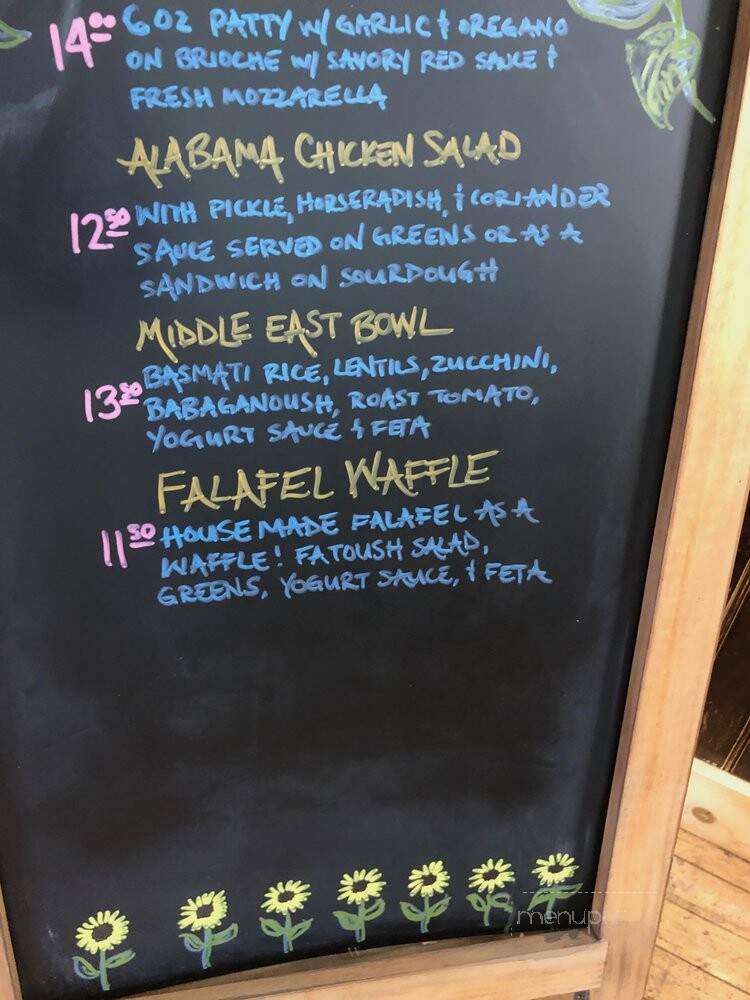 14.00 6 OZ PATTY W/ GARLIC & OREGANO
ON BRIOCHE W/ SAVORY RED SAUCE &
FRESH MOZZARELLA
ALABAMA CHICKEN SALAD
12.50 WITH PICKLE, HORSERADISH, & CORIANDER
SAUCE SERVED ON GREENS OR AS A
SANDWICH ON SOURDOUGH
MIDDLE EAST BOWL
13.50 BASMATI RICE, LENTILS, ZUCCHINI,
BABAGANOUSH, ROAST TOMATO,
YOGURT SAUCE & FETA
FALAFEL WAFFLE
11.50 HOUSE MADE FALAFEL AS A
WAFFLE! FATOUSH SALAD,
GREENS, YOGURT SAUCE, & FETA